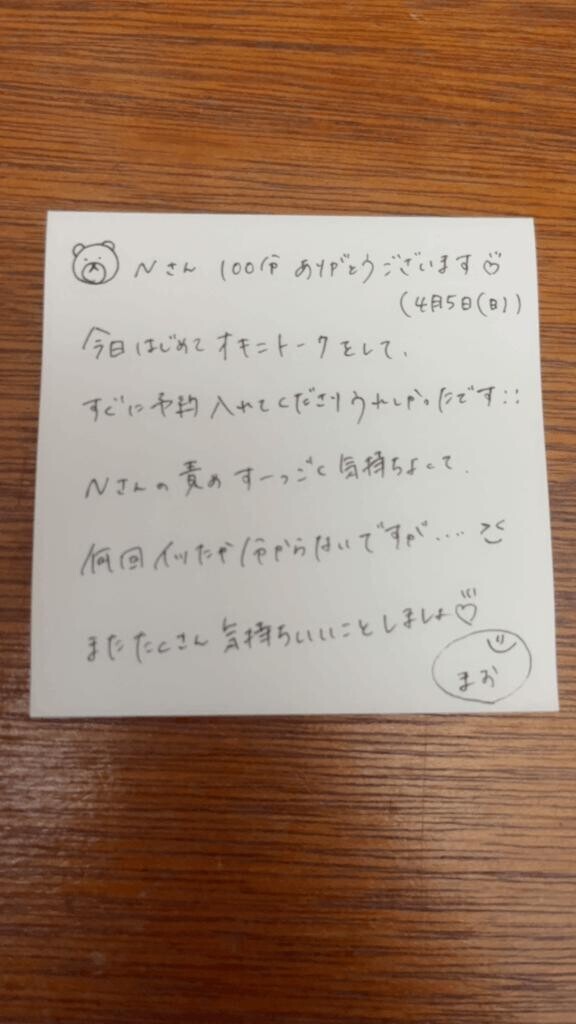 Nさん 100分 ありがとうございます♡
(4月5日(日))
今日はじめてオキニトークをして、
すぐに予約入れてくださりうれしかったです::
Nさんの責めすーっごく気持ちよくて、
何回イッたか分からないですが.... ><
またたくさん気持ちいいことしましょ♡
まお